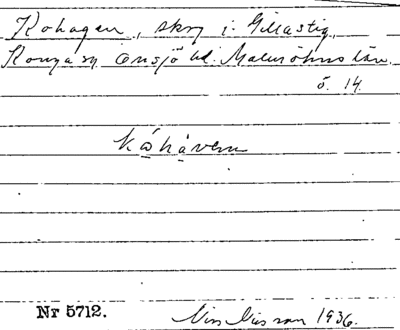 Kohagen, skog i Gillastig,
Konga sn Onsjö hd. Malmöhus län.
ö. 14.
kåhávenn
Nr 5712. Nils Nilsson 1936.